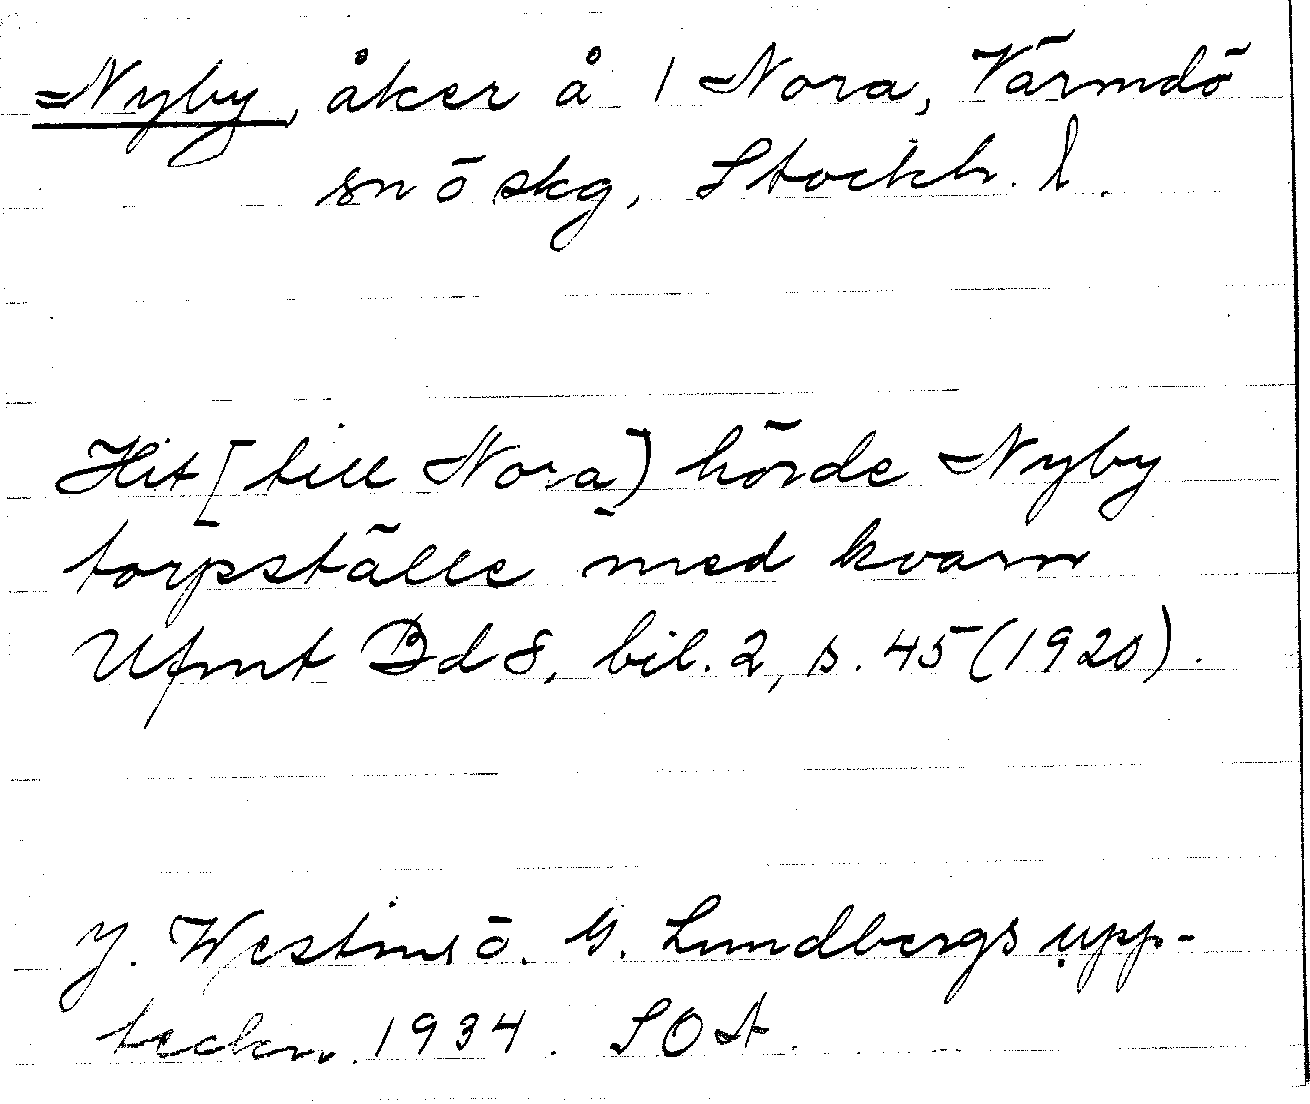 Nyby, åker å 1 Nora, Värmdö
sn ö skg, Stockh. l.
Hit [till Nora) hörde Nyby
torpställe med kvarn
Ufmt Bd 8, bil. 2, s. 45 (1920).
J. Westins ö. G. Lundbergs upp-
teckn. 1934. SOA.